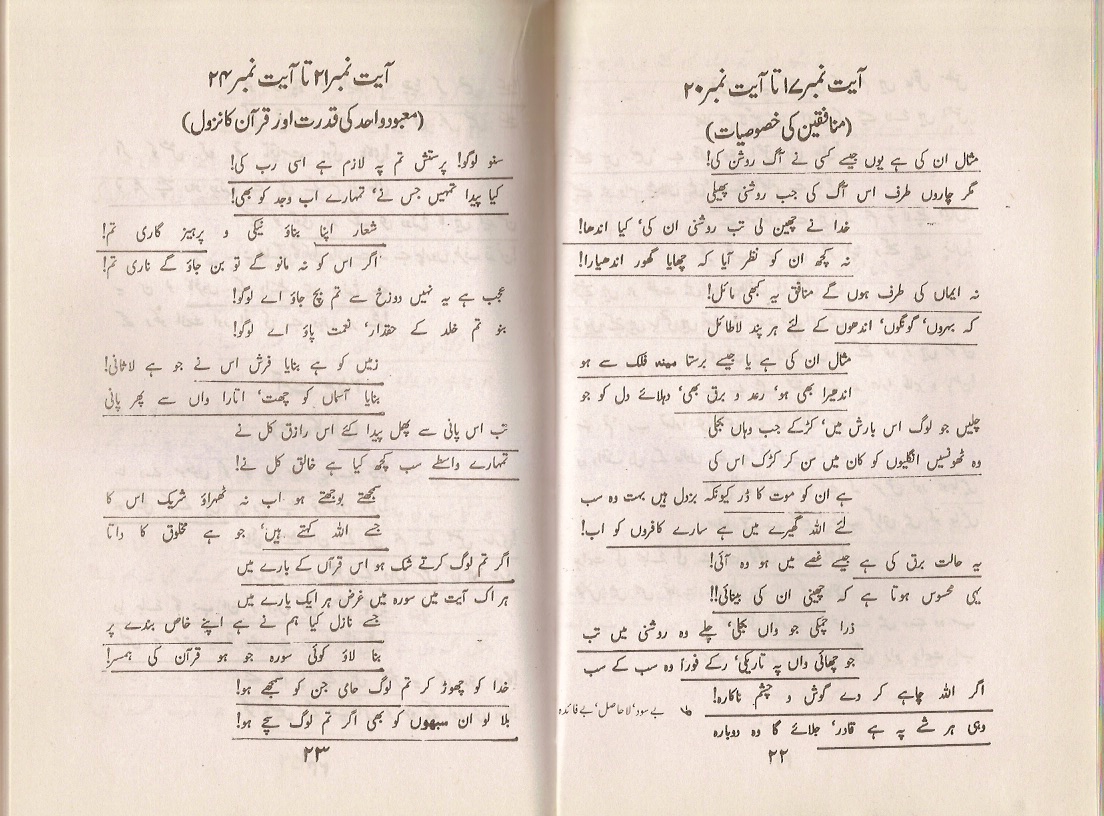 آیت نمبر ۱۷ تا آیت نمبر ۲۰
(منافقین کی خصوصیات)
مثال ان کی ہے یوں جیسے کسی نے آگ روشن کی!
مگر چاروں طرف اس آگ کی جب روشنی پھیلی
خدا نے چھین لی تب روشنی ان کی، کیا اندھا!
نہ کچھ ان کو نظر آیا کہ چھایا گھور اندھیارا!
نہ ایماں کی طرف ہوں گے منافق یہ کبھی مائل!
کہ بہروں، گونگوں، اندھوں کے لئے ہر پند لاطائل
مثال ان کی ہے یا جیسے برستا مینہ فلک سے ہو
اندھیرا بھی ہو، رعد و برق بھی، دہلائے دل کو جو
چلیں جو لوگ اس بارش میں، کڑکے جب وہاں بجلی
وہ ٹھونسیں انگلیوں کو کان میں سن کر کڑک اس کی
ہے ان کو موت کا ڈر کیونکہ بزدل ہیں بہت وہ سب
لئے اللہ گھیرے میں ہے سارے کافروں کو اب!
یہ حالت برق کی ہے جیسے غصے میں ہو وہ آئی!
یہی محسوس ہوتا ہے کہ چھینی ان کی بینائی!!
ذرا چمکی جو واں بجلی، چلے وہ روشنی میں تب
جو چھائی واں پہ تاریکی، رکے فوراً وہ سب کے سب
اگر اللہ چاہے کر دے گوش و چشم ناکارہ!
وہی ہر شے پہ ہے قادر، جلائے گا وہ دوبارہ
بے سود، لاحاصل، بے فائدہ
۲۲
آیت نمبر ۲۱ تا آیت نمبر ۲۴
(معبود واحد کی قدرت اور قرآن کا نزول)
سنو لوگو! پرستش تم پہ لازم ہے اسی رب کی!
کیا پیدا تمہیں جس نے، تمہارے اب وجد کو بھی!
شعار اپنا بناؤ نیکی و پرہیز گاری تم!
اگر اس کو نہ مانو گے تو بن جاؤ گے ناری تم!
عجب ہے یہ نہیں دوزخ سے تم بچ جاؤ اے لوگو!
بنو تم خلد کے حقدار، نعمت پاؤ اے لوگو!
زمیں کو ہے بنایا فرش اس نے جو ہے لاثانی!
بنایا آسماں کو چھت، اتارا واں سے پھر پانی
تب اس پانی سے پھل پیدا کئے اس رازق کل نے
تمہارے واسطے سب کچھ کیا ہے خالق کل نے!
سمجھتے بوجھتے ہو اب نہ ٹھہراؤ شریک اس کا
جسے اللہ کہتے ہیں، جو ہے مخلوق کا داتا
اگر تم لوگ کرتے شک ہو اس قرآں کے بارے میں
ہر اک آیت میں سورہ میں غرض ہر ایک پارے میں
جسے نازل کیا ہم نے ہے اپنے خاص بندے پر
بنا لاؤ کوئی سورہ جو ہو قرآن کی ہمسر!
خدا کو چھوڑ کر تم لوگ حامی جن کو سمجھے ہو!
بلا لو ان سبھوں کو بھی اگر تم لوگ سچے ہو!
۲۳